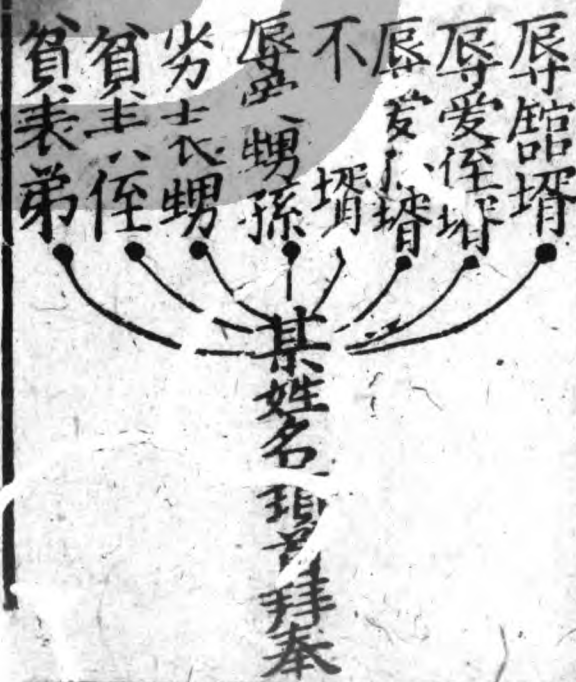 辱舘壻
辱愛侄壻
辱愛孫壻
不壻
辱愛甥孫
劣表甥
貧表侄
貧表弟
某姓名頓首拜奉